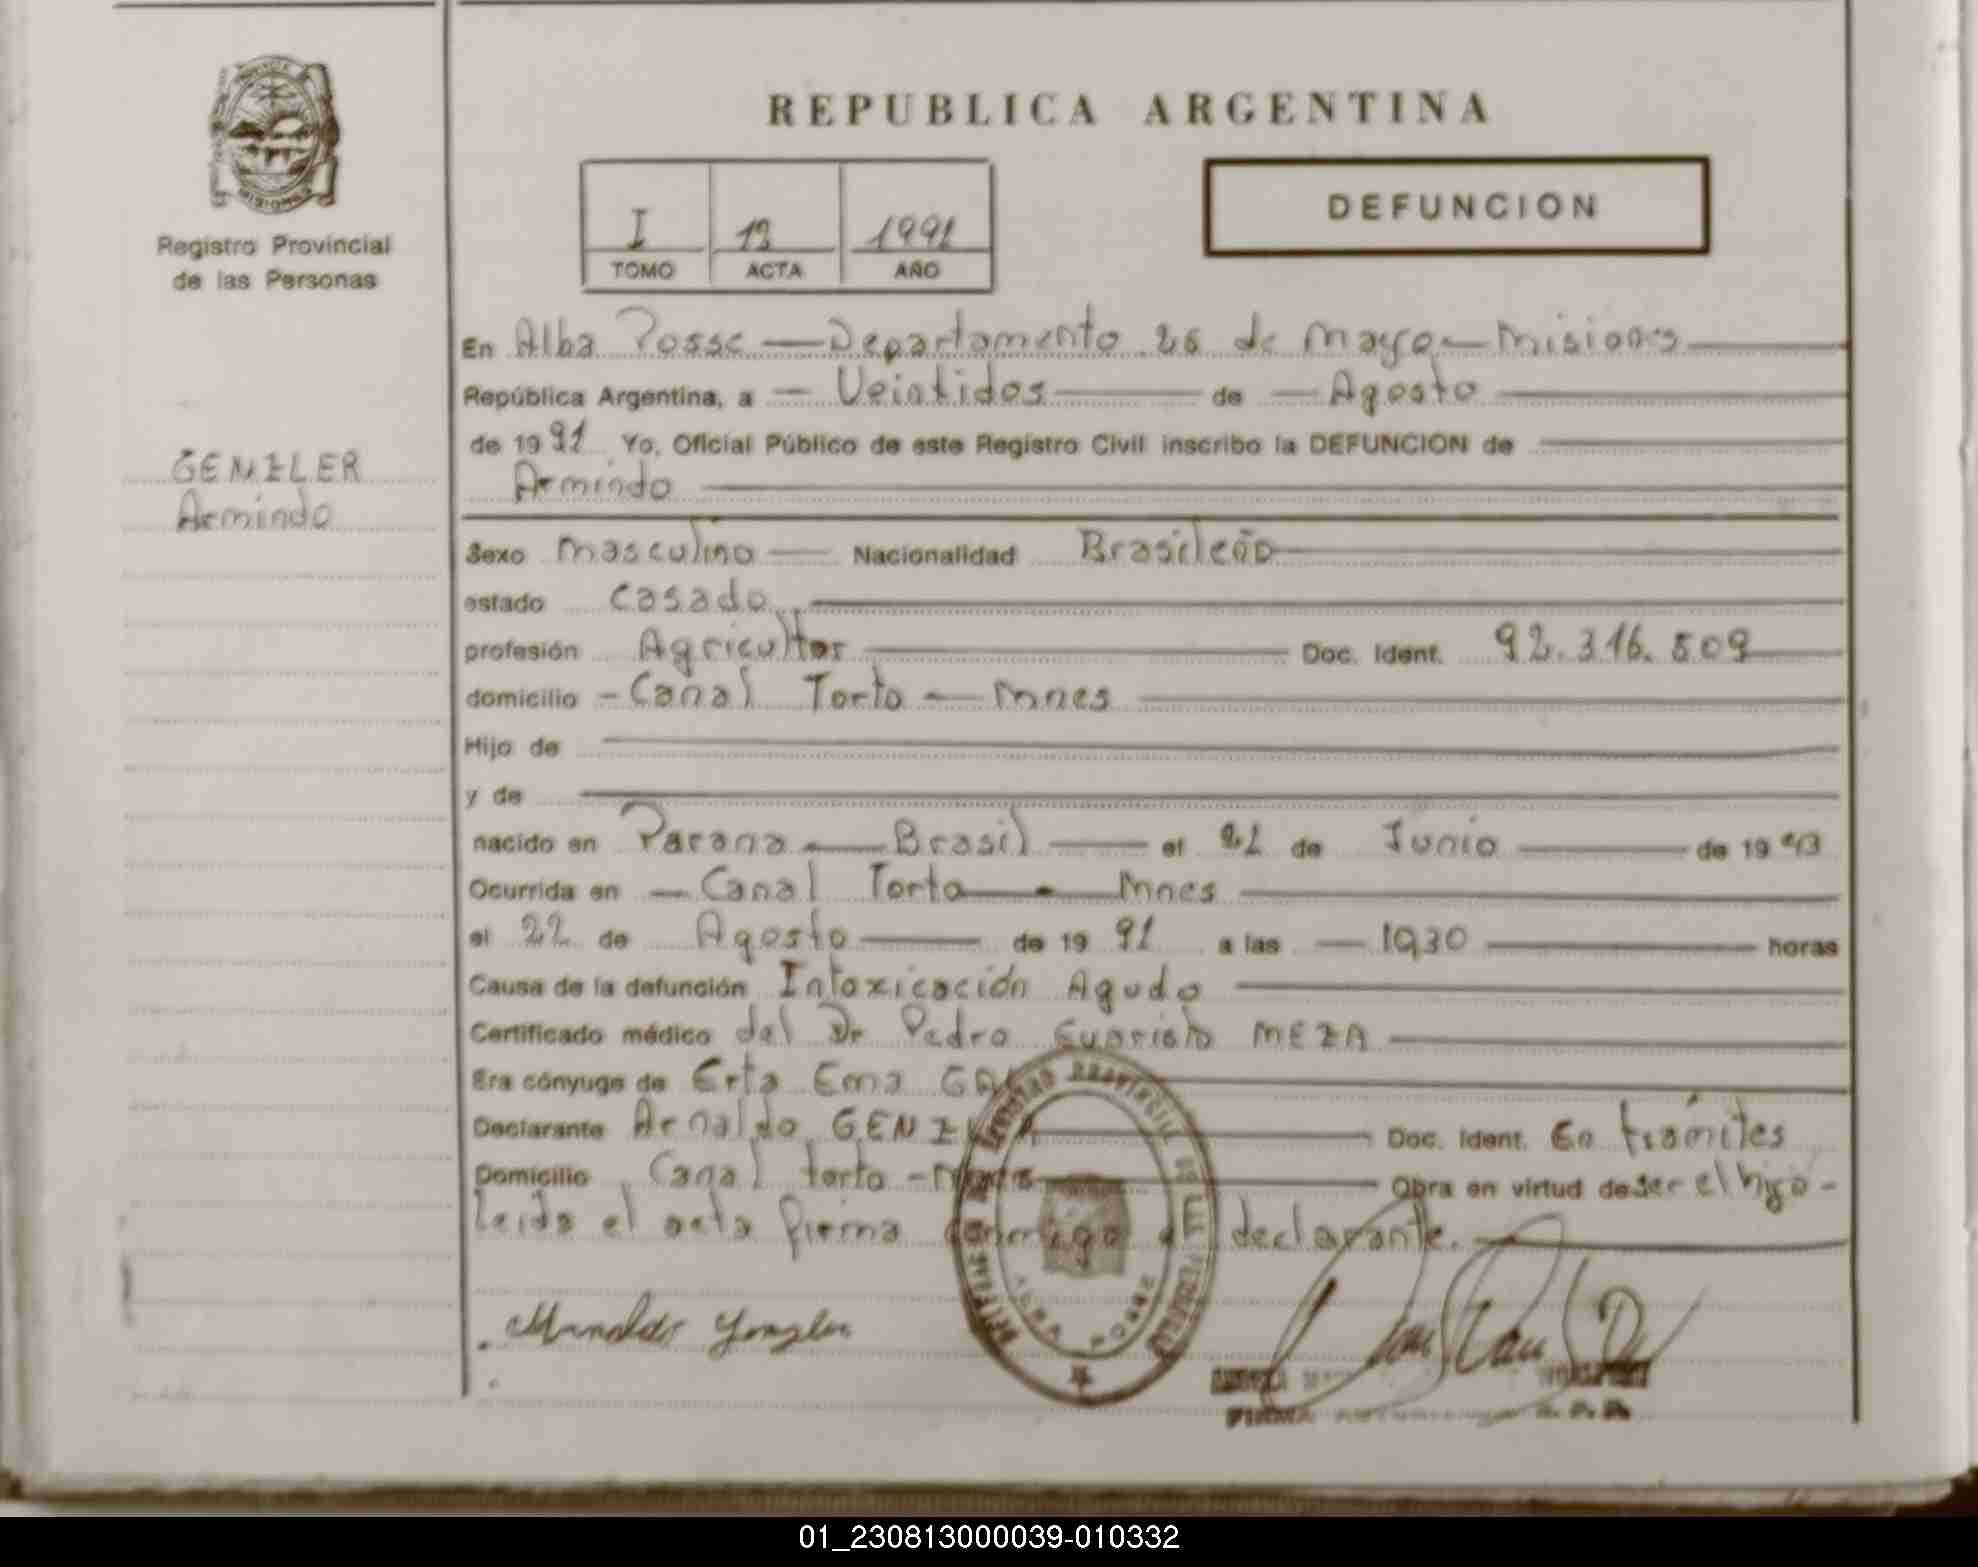 REPUBLICA ARGENTINA
PROVINCIA DE MISIONES
Registro Provincial
de las Personas
I 1991
TOMO ACTA AÑO
DEFUNCION
GENZLER
Armindo
En Alba Posse — Departamento 25 de Mayo — Misiones
República Argentina, a — Veintidos — de — Agosto
de 1991 Yo, Oficial Público de este Registro Civil inscribo la DEFUNCION de
Armindo
Sexo Masculino — Nacionalidad Brasileño
estado Casado
profesión Agricultor Doc. Ident. 92.316.509
domicilio - Canal Torto — Mnes
Hijo de
y de
nacido en Parana — Brasil — el de Junio — de 19
Ocurrida en — Canal Torto — Mnes
el 22 de Agosto — de 1991 a las — 1930 — horas
Causa de la defunción Intoxicación Aguda
Certificado médico del Dr Pedro Evaristo MEZA
Era cónyuge de Erta Ema
Declarante Arnaldo GENZLER Doc. Ident. En trámites
Domicilio Canal torto - Mnes Obra en virtud de ser el hijo -
Leida el acta firma conmigo el declarante.
Arnaldo Genzler
REGISTRO PROVINCIAL DE LAS PERSONAS
01_230813000039-010332